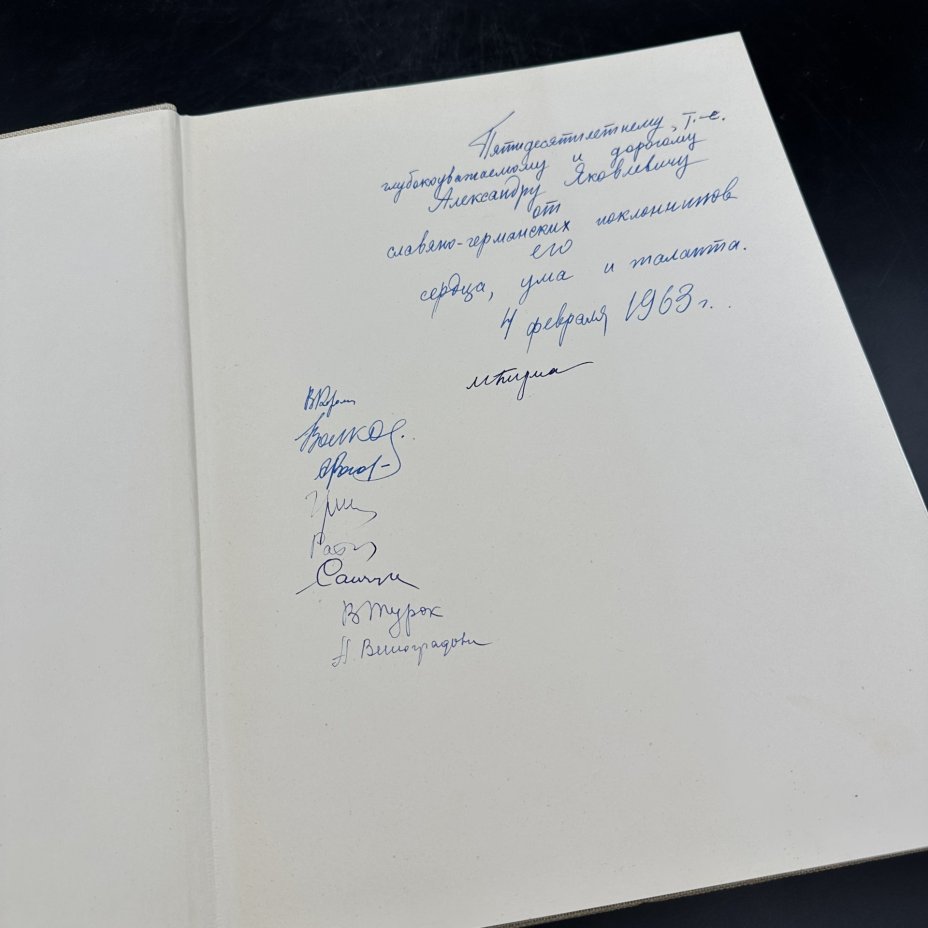 Пятидесятилетнему, т.-е.
глубокоуважаемому и дорогому
Александру Яковлевичу
от
славяно-германских поклонников
его
сердца, ума и таланта.
4 февраля 1963 г.
Волков
В Турок
Виноградов